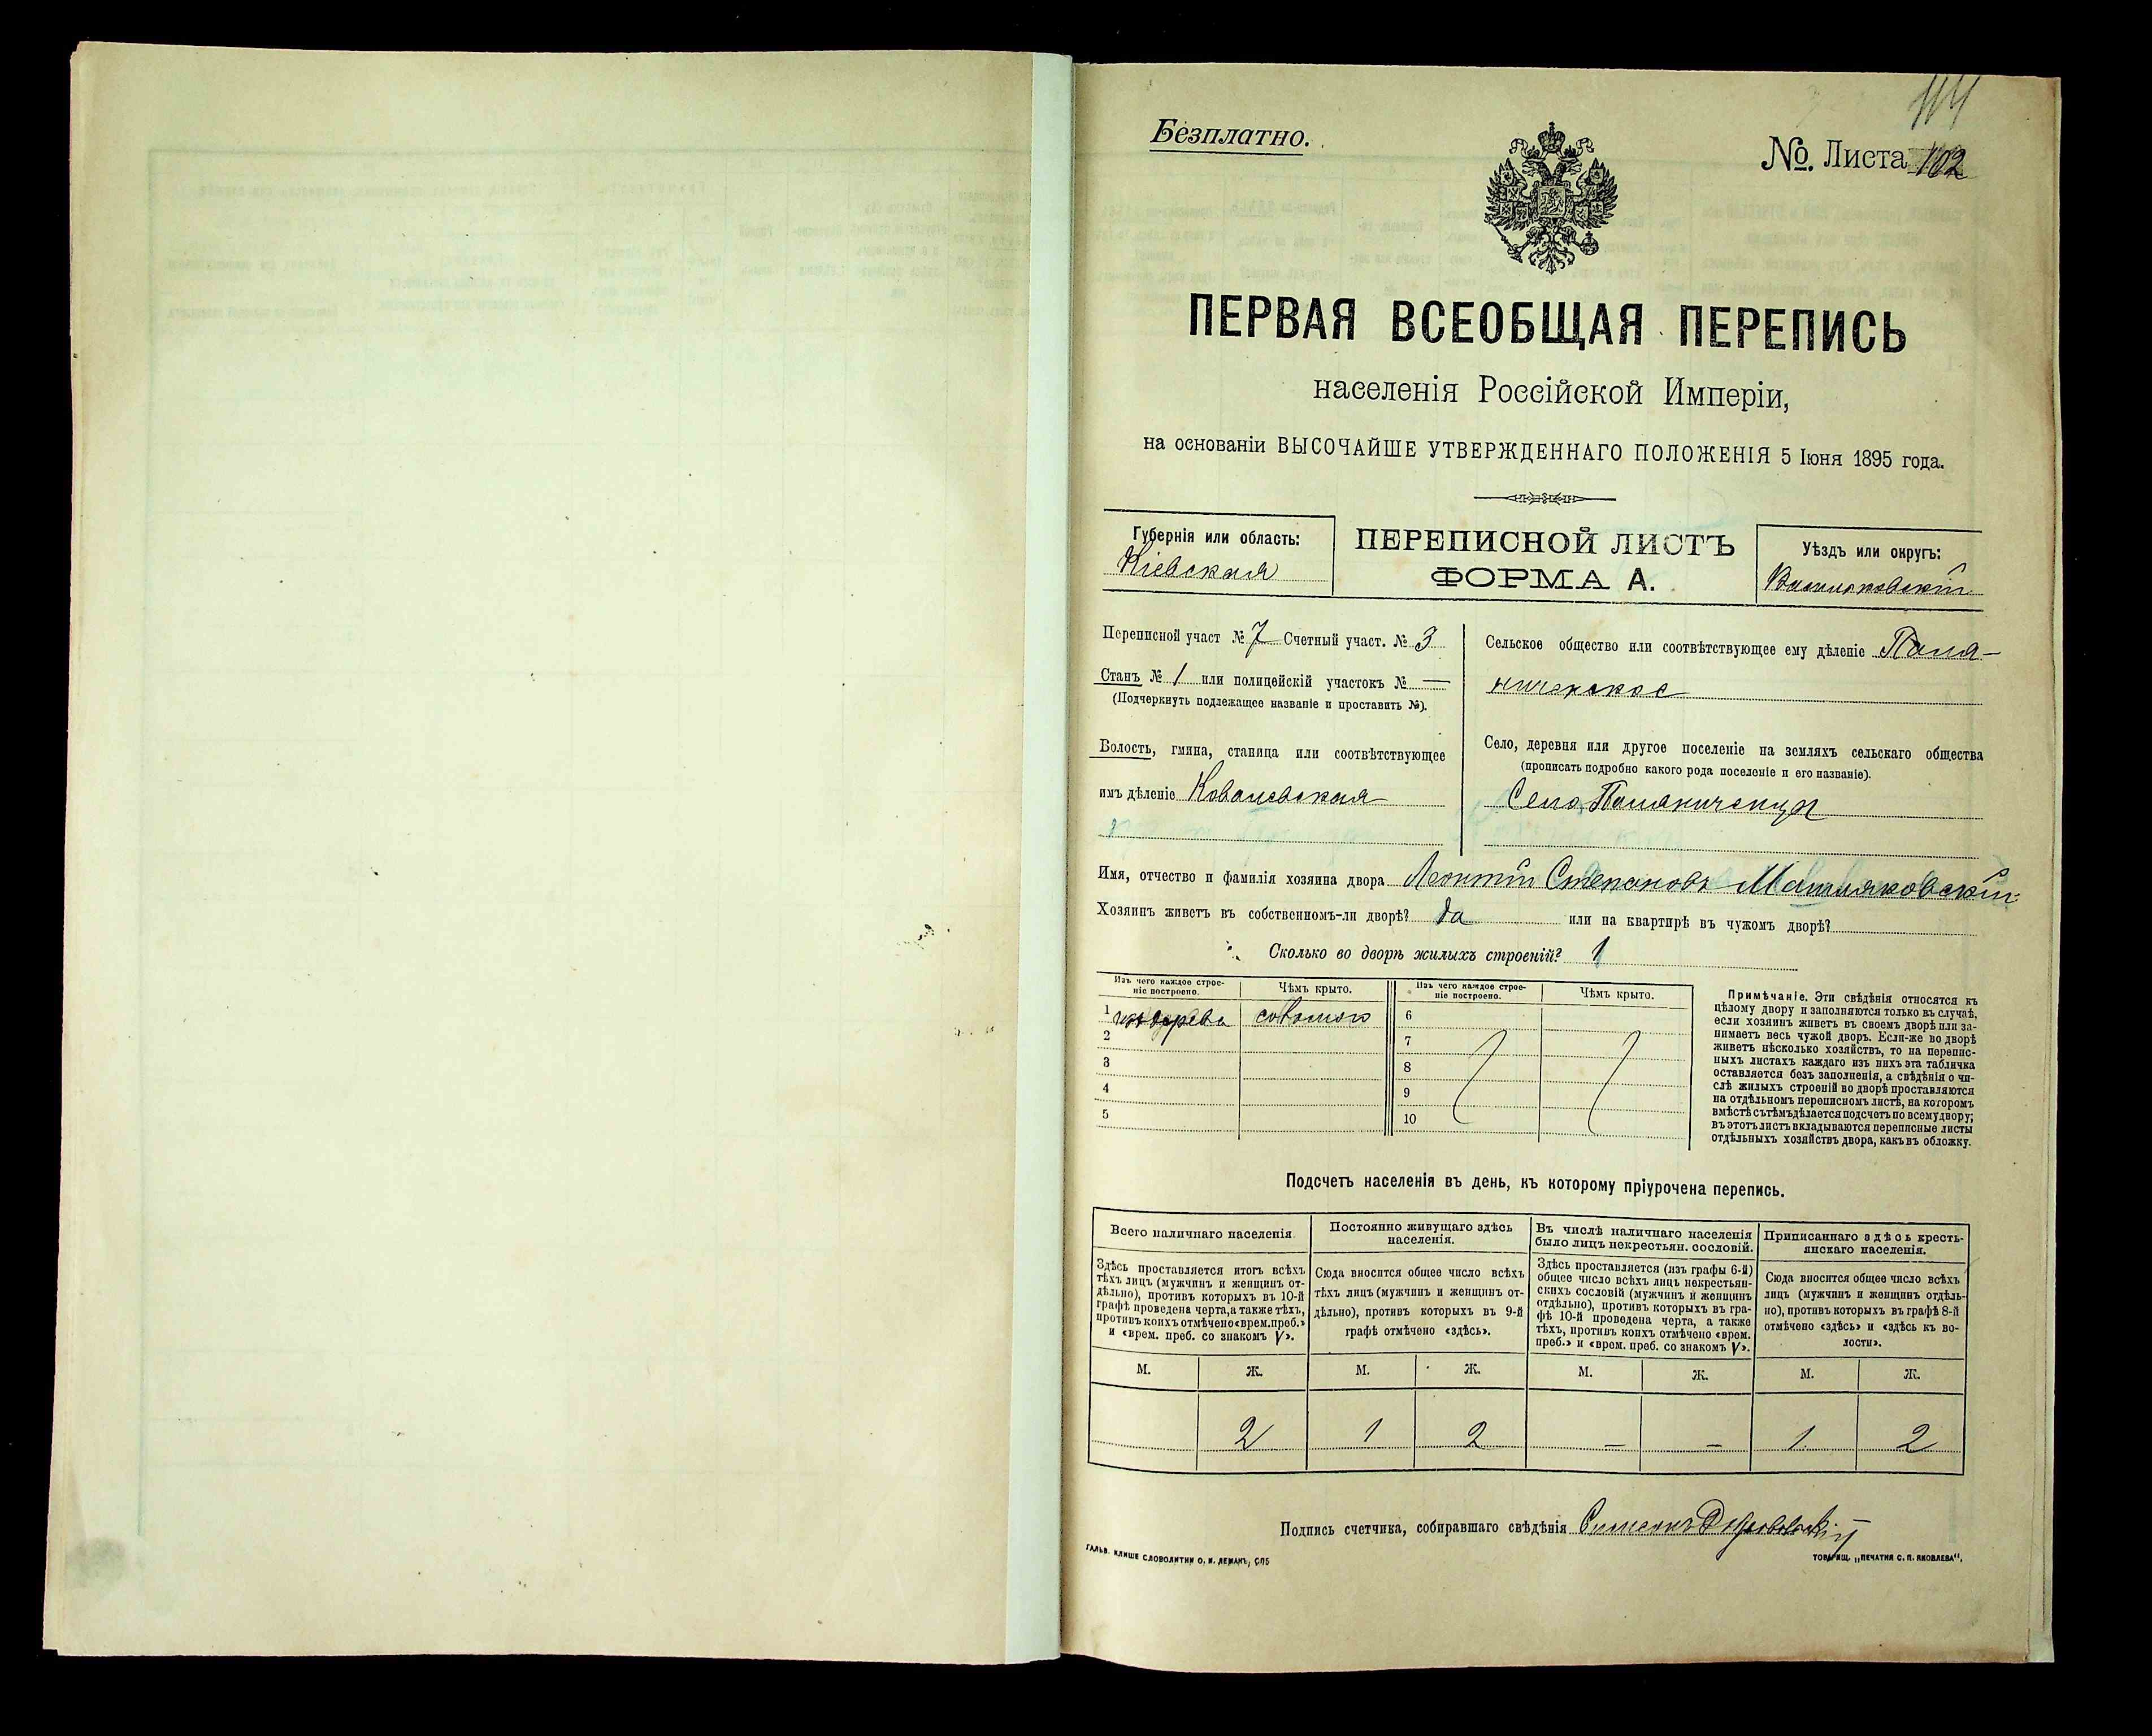 114
Безплатно.
№. Листа 102
ПЕРВАЯ ВСЕОБЩАЯ ПЕРЕПИСЬ
населенія Россійской Имперіи,
на основаніи ВЫСОЧАЙШЕ УТВЕРЖДЕННАГО ПОЛОЖЕНІЯ 5 Іюня 1895 года.
Губернія или область:
Кіевская
ПЕРЕПИСНОЙ ЛИСТЪ
ФОРМА А.
Уѣздъ или округъ:
Васильковскій
Переписной участ № 7 Счетный участ. № 3
Станъ № 1 или полицейскій участокъ № —
(Подчеркнуть подлежащее названіе и проставить №).
Волость, гмина, станица или соотвѣтствующее
имъ дѣленіе Ковалевская
Сельское общество или соотвѣтствующее ему дѣленіе Паля-
ниченское
Село, деревня или другое поселеніе на земляхъ сельскаго общества
(прописать подробно какого рода поселеніе и его названіе).
Село Паляниченцы
Имя, отчество и фамилія хозяина двора Леонтій Степановъ
Хозяинъ живетъ въ собственномъ-ли дворѣ? да или на квартирѣ въ чужомъ дворѣ?
Сколько во дворѣ жилыхъ строеній? 1
Изъ чего каждое строе-
ніе построено.
Чѣмъ крыто.
Изъ чего каждое строе-
ніе построено.
Чѣмъ крыто.
1 изъ дерева соломою 6
2 7
3 8
4 9
5 10
Примѣчаніе. Эти свѣдѣнія относятся къ
цѣлому двору и заполняются только въ случаѣ,
если хозяинъ живетъ въ своемъ дворѣ или за-
нимаетъ весь чужой дворъ. Если-же во дворѣ
живетъ нѣсколько хозяйствъ, то на перепис-
ныхъ листахъ каждаго изъ нихъ эта табличка
оставляется безъ заполненія, а свѣдѣнія о чи-
слѣ жилыхъ строеній во дворѣ проставляются
на отдѣльномъ переписномъ листѣ, на которомъ
вмѣстѣ съ тѣмъ дѣлается подсчетъ по всему двору;
въ этотъ листъ вкладываются переписные листы
отдѣльныхъ хозяйствъ двора, какъ въ обложку.
Подсчетъ населенія въ день, къ которому пріурочена перепись.
Всего наличнаго населенія
Здѣсь проставляется итогъ всѣхъ
тѣхъ лицъ (мужчинъ и женщинъ от-
дѣльно), противъ которыхъ въ 10-й
графѣ проведена черта, а также тѣхъ,
противъ коихъ отмѣчено «врем. преб.»
и «врем. преб. со знакомъ V».
Постоянно живущаго здѣсь
населенія.
Сюда вносится общее число всѣхъ
тѣхъ лицъ (мужчинъ и женщинъ от-
дѣльно), противъ которыхъ въ 9-й
графѣ отмѣчено «здѣсь».
Въ числѣ наличнаго населенія
было лицъ некрестьян. сословій.
Здѣсь проставляется (изъ графы 6-й)
общее число всѣхъ лицъ некрестьян-
скихъ сословій (мужчинъ и женщинъ
отдѣльно), противъ которыхъ въ гра-
фѣ 10-й проведена черта, а также
тѣхъ, противъ коихъ отмѣчено «врем.
преб.» и «врем. преб. со знакомъ V».
Приписаннаго здѣсь кресть-
янскаго населенія.
Сюда вносится общее число всѣхъ
лицъ (мужчинъ и женщинъ отдѣль-
но), противъ которыхъ въ графѣ 8-й
отмѣчено «здѣсь» и «здѣсь къ во-
лости».
М. Ж. М. Ж. М. Ж. М. Ж.
2 1 2 — — 1 2
Подпись счетчика, собиравшаго свѣдѣнія
ГАЛЬВ. КЛИШЕ СЛОВОЛИТНИ О. И. ЛЕМАНЪ, СПБ
ТОВАРИЩ. „ПЕЧАТНЯ С. П. ЯКОВЛЕВА“.